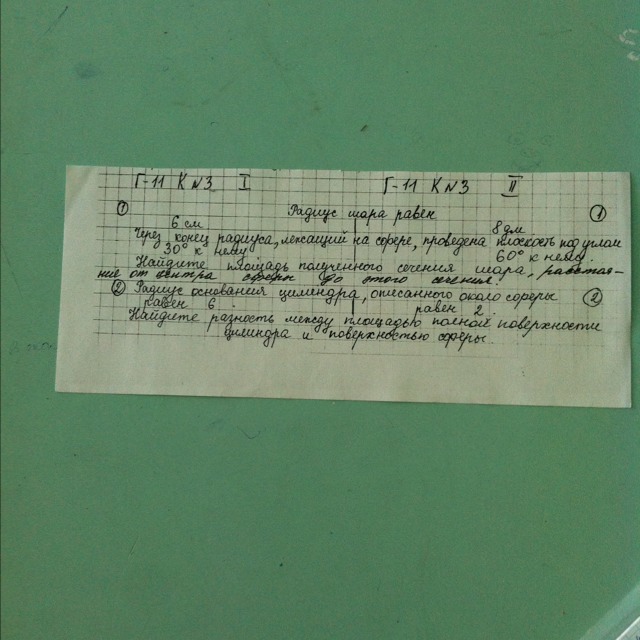 Г-11 К №3 I Г-11 К №3 II
① Радиус шара равен ①
6 см 8 дм
Через конец радиуса, лежащий на сфере, проведена плоскость под углом
30° к нему. 60° к нему.
Найдите площадь полученного сечения шара, расстоя-
ние от центра сферы до этого сечения.
② Радиус основания цилиндра, описанного около сферы ②
равен 6. равен 2.
Найдите разность между площадью полной поверхности
цилиндра и поверхностью сферы.